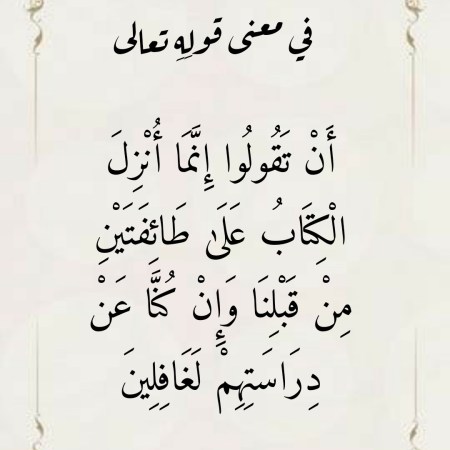 في معنى قولِهِ تعالى
أَنْ تَقُولُوا إِنَّمَا أُنْزِلَ
الْكِتَابُ عَلَىٰ طَائِفَتَيْنِ
مِنْ قَبْلِنَا وَإِنْ كُنَّا عَنْ
دِرَاسَتِهِمْ لَغَافِلِينَ